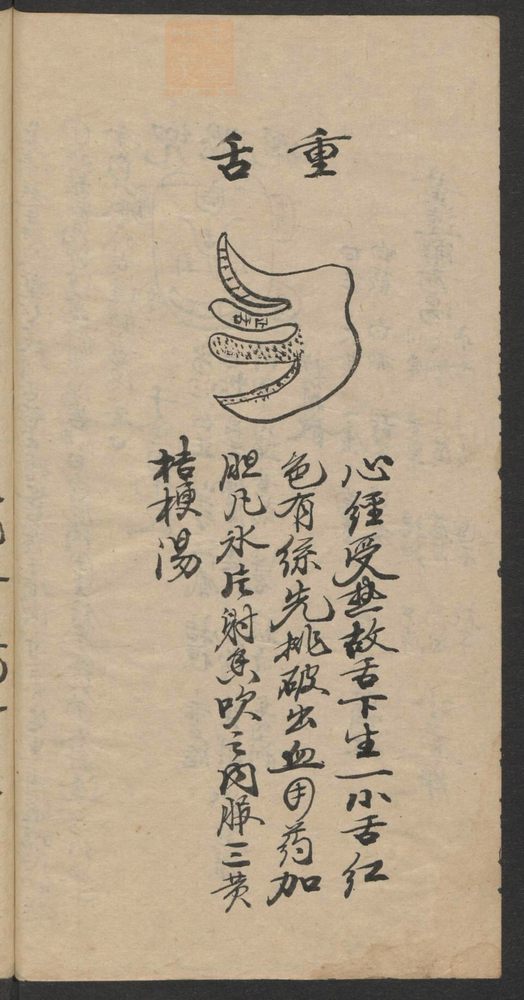 重舌
正舌
心經受热故舌下生一小舌红
色有絲先挑破出血用药加
胆凡氷片射香吹之内服三黄
桔梗湯